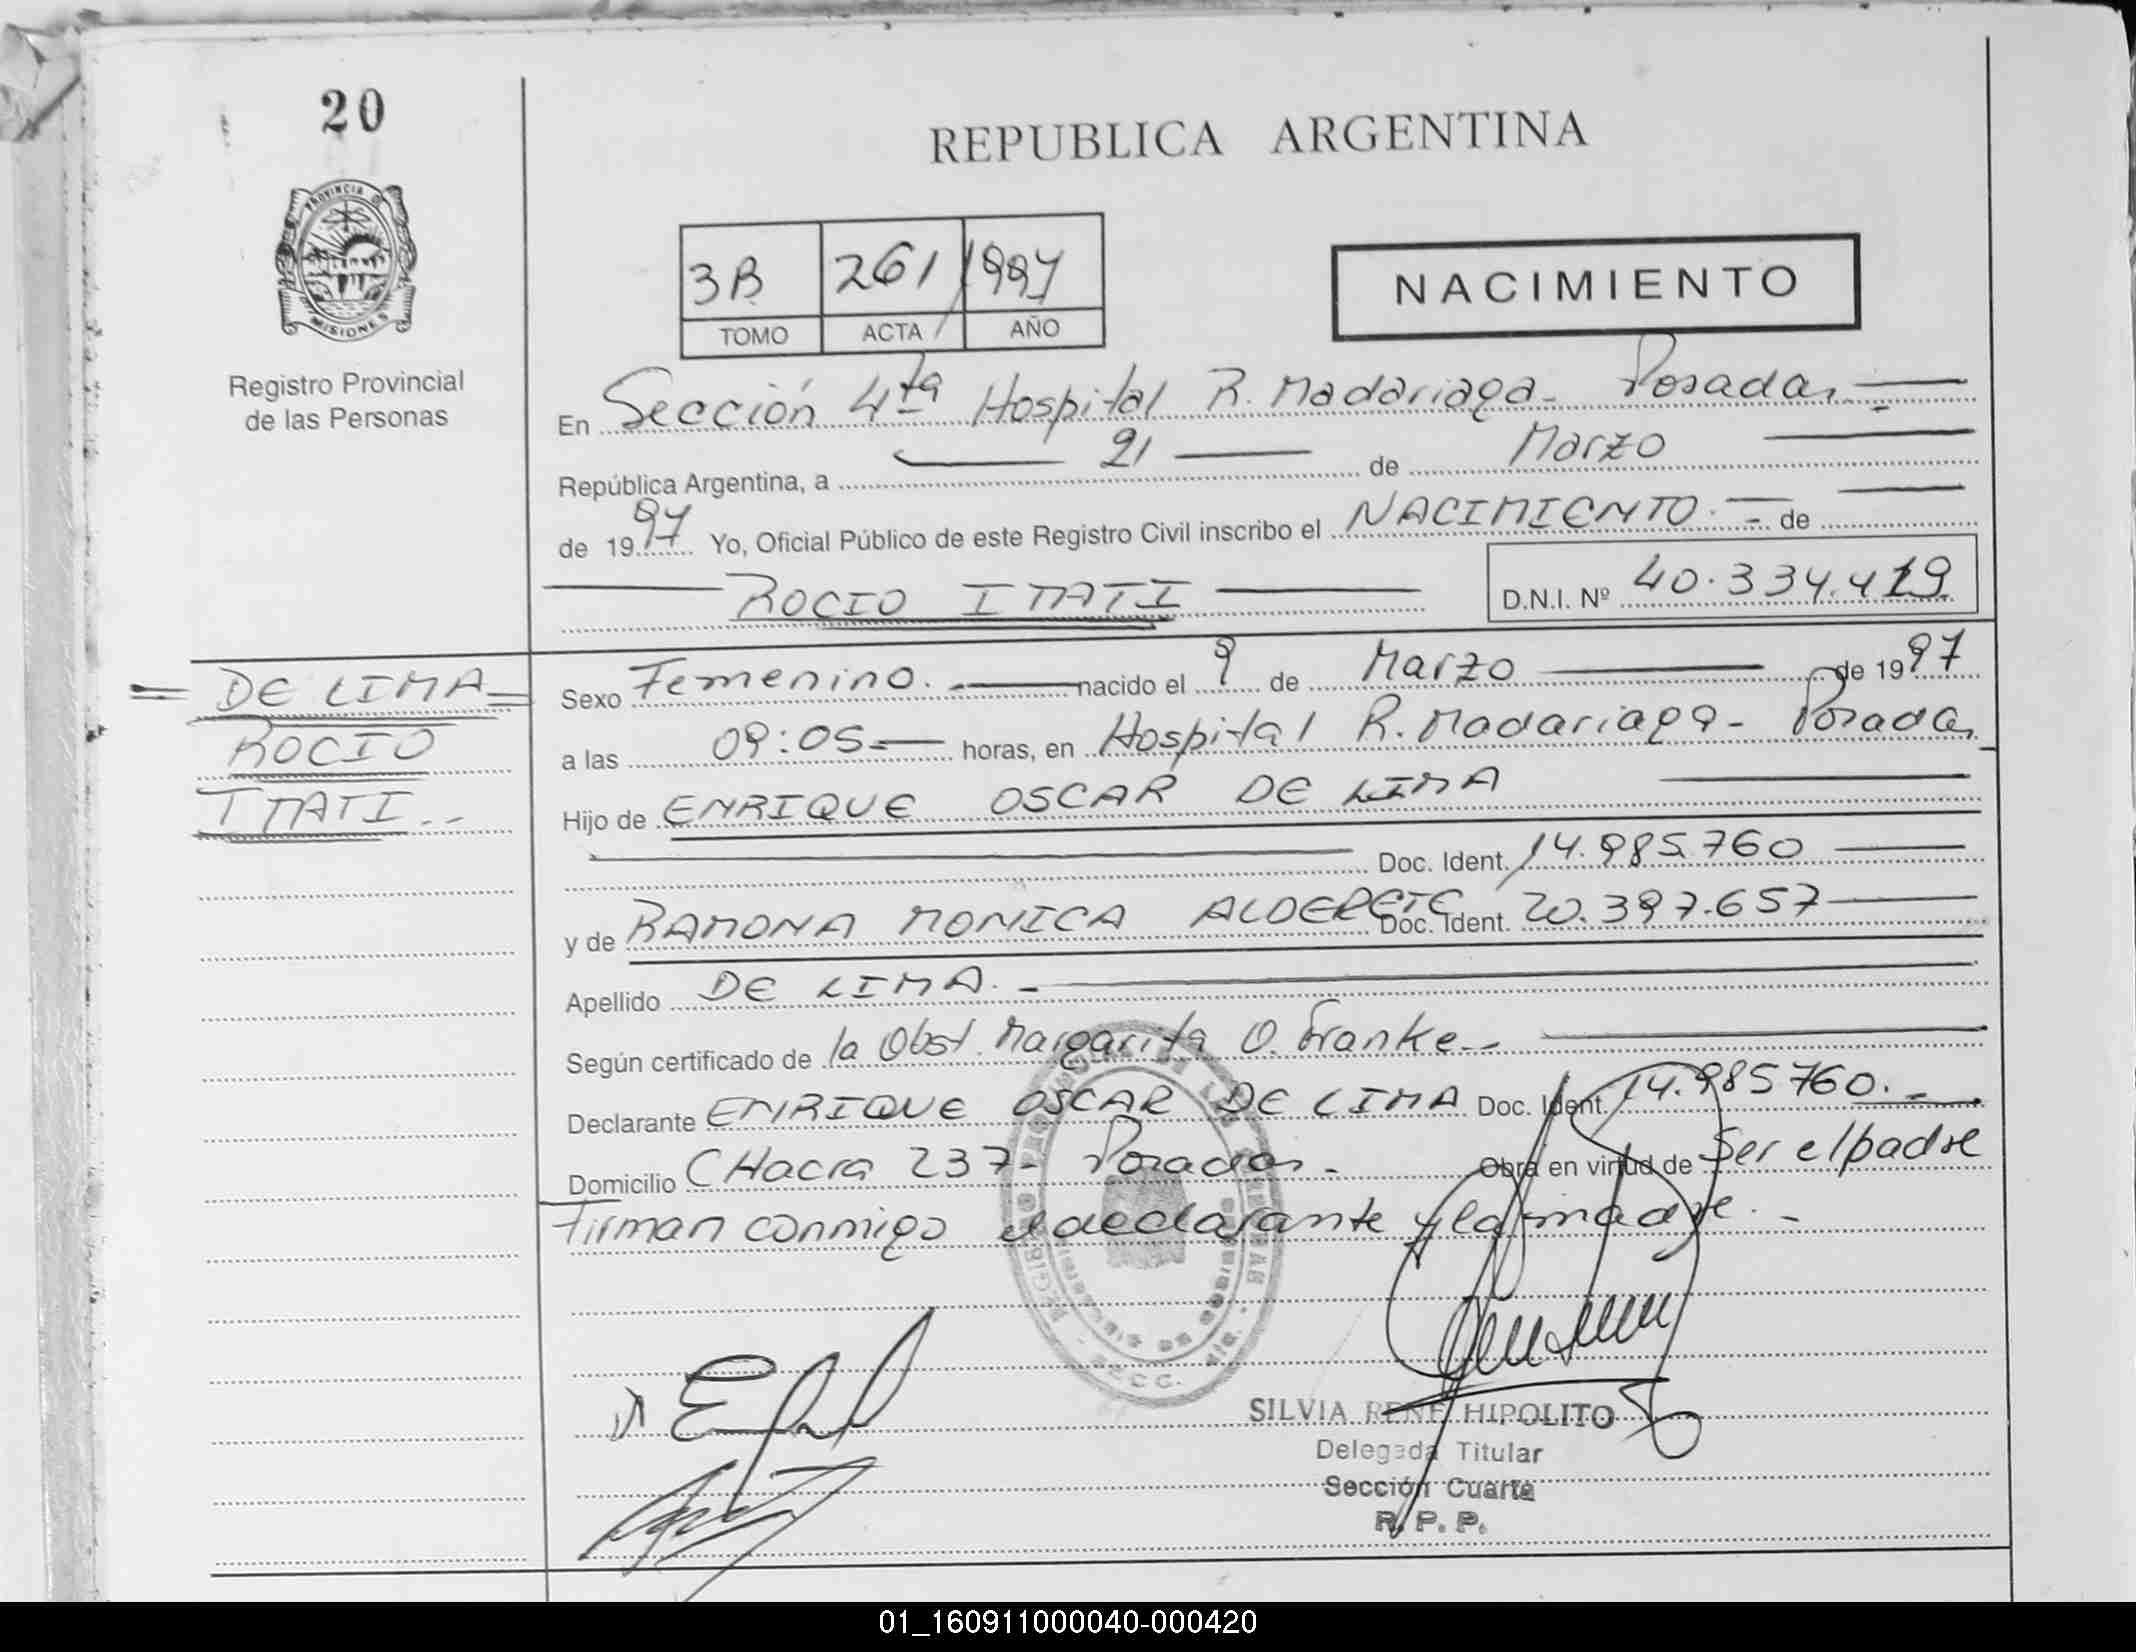 20
REPUBLICA ARGENTINA
PROVINCIA DE
MISIONES
Registro Provincial
de las Personas
3B 261 1997
TOMO ACTA AÑO
NACIMIENTO
En Sección 4ta Hospital R. Madariaga - Posadas
República Argentina, a 21 de Marzo
de 1997 Yo, Oficial Público de este Registro Civil inscribo el NACIMIENTO. de
ROCIO ITATI
D.N.I. Nº 40.334.419
DE LIMA
ROCIO
ITATI
Sexo Femenino. nacido el 9 de Marzo de 1997
a las 09:05 horas, en Hospital R. Madariaga - Posadas
Hijo de ENRIQUE OSCAR DE LIMA
Doc. Ident. 14.985.760
y de RAMONA MONICA ALDERETE Doc. Ident. 20.397.657
Apellido DE LIMA. -
Según certificado de la Obst. Margarita O. Franke. -
Declarante ENRIQUE OSCAR DE LIMA Doc. Ident. 14.985760. -
Domicilio CHacra 237 - Posadas. - Obra en virtud de Ser el padre
Firman conmigo el declarante y la madre. -
SILVIA RENE HIPOLITO
Delegada Titular
Sección Cuarta
R. P. P.
01_160911000040-000420